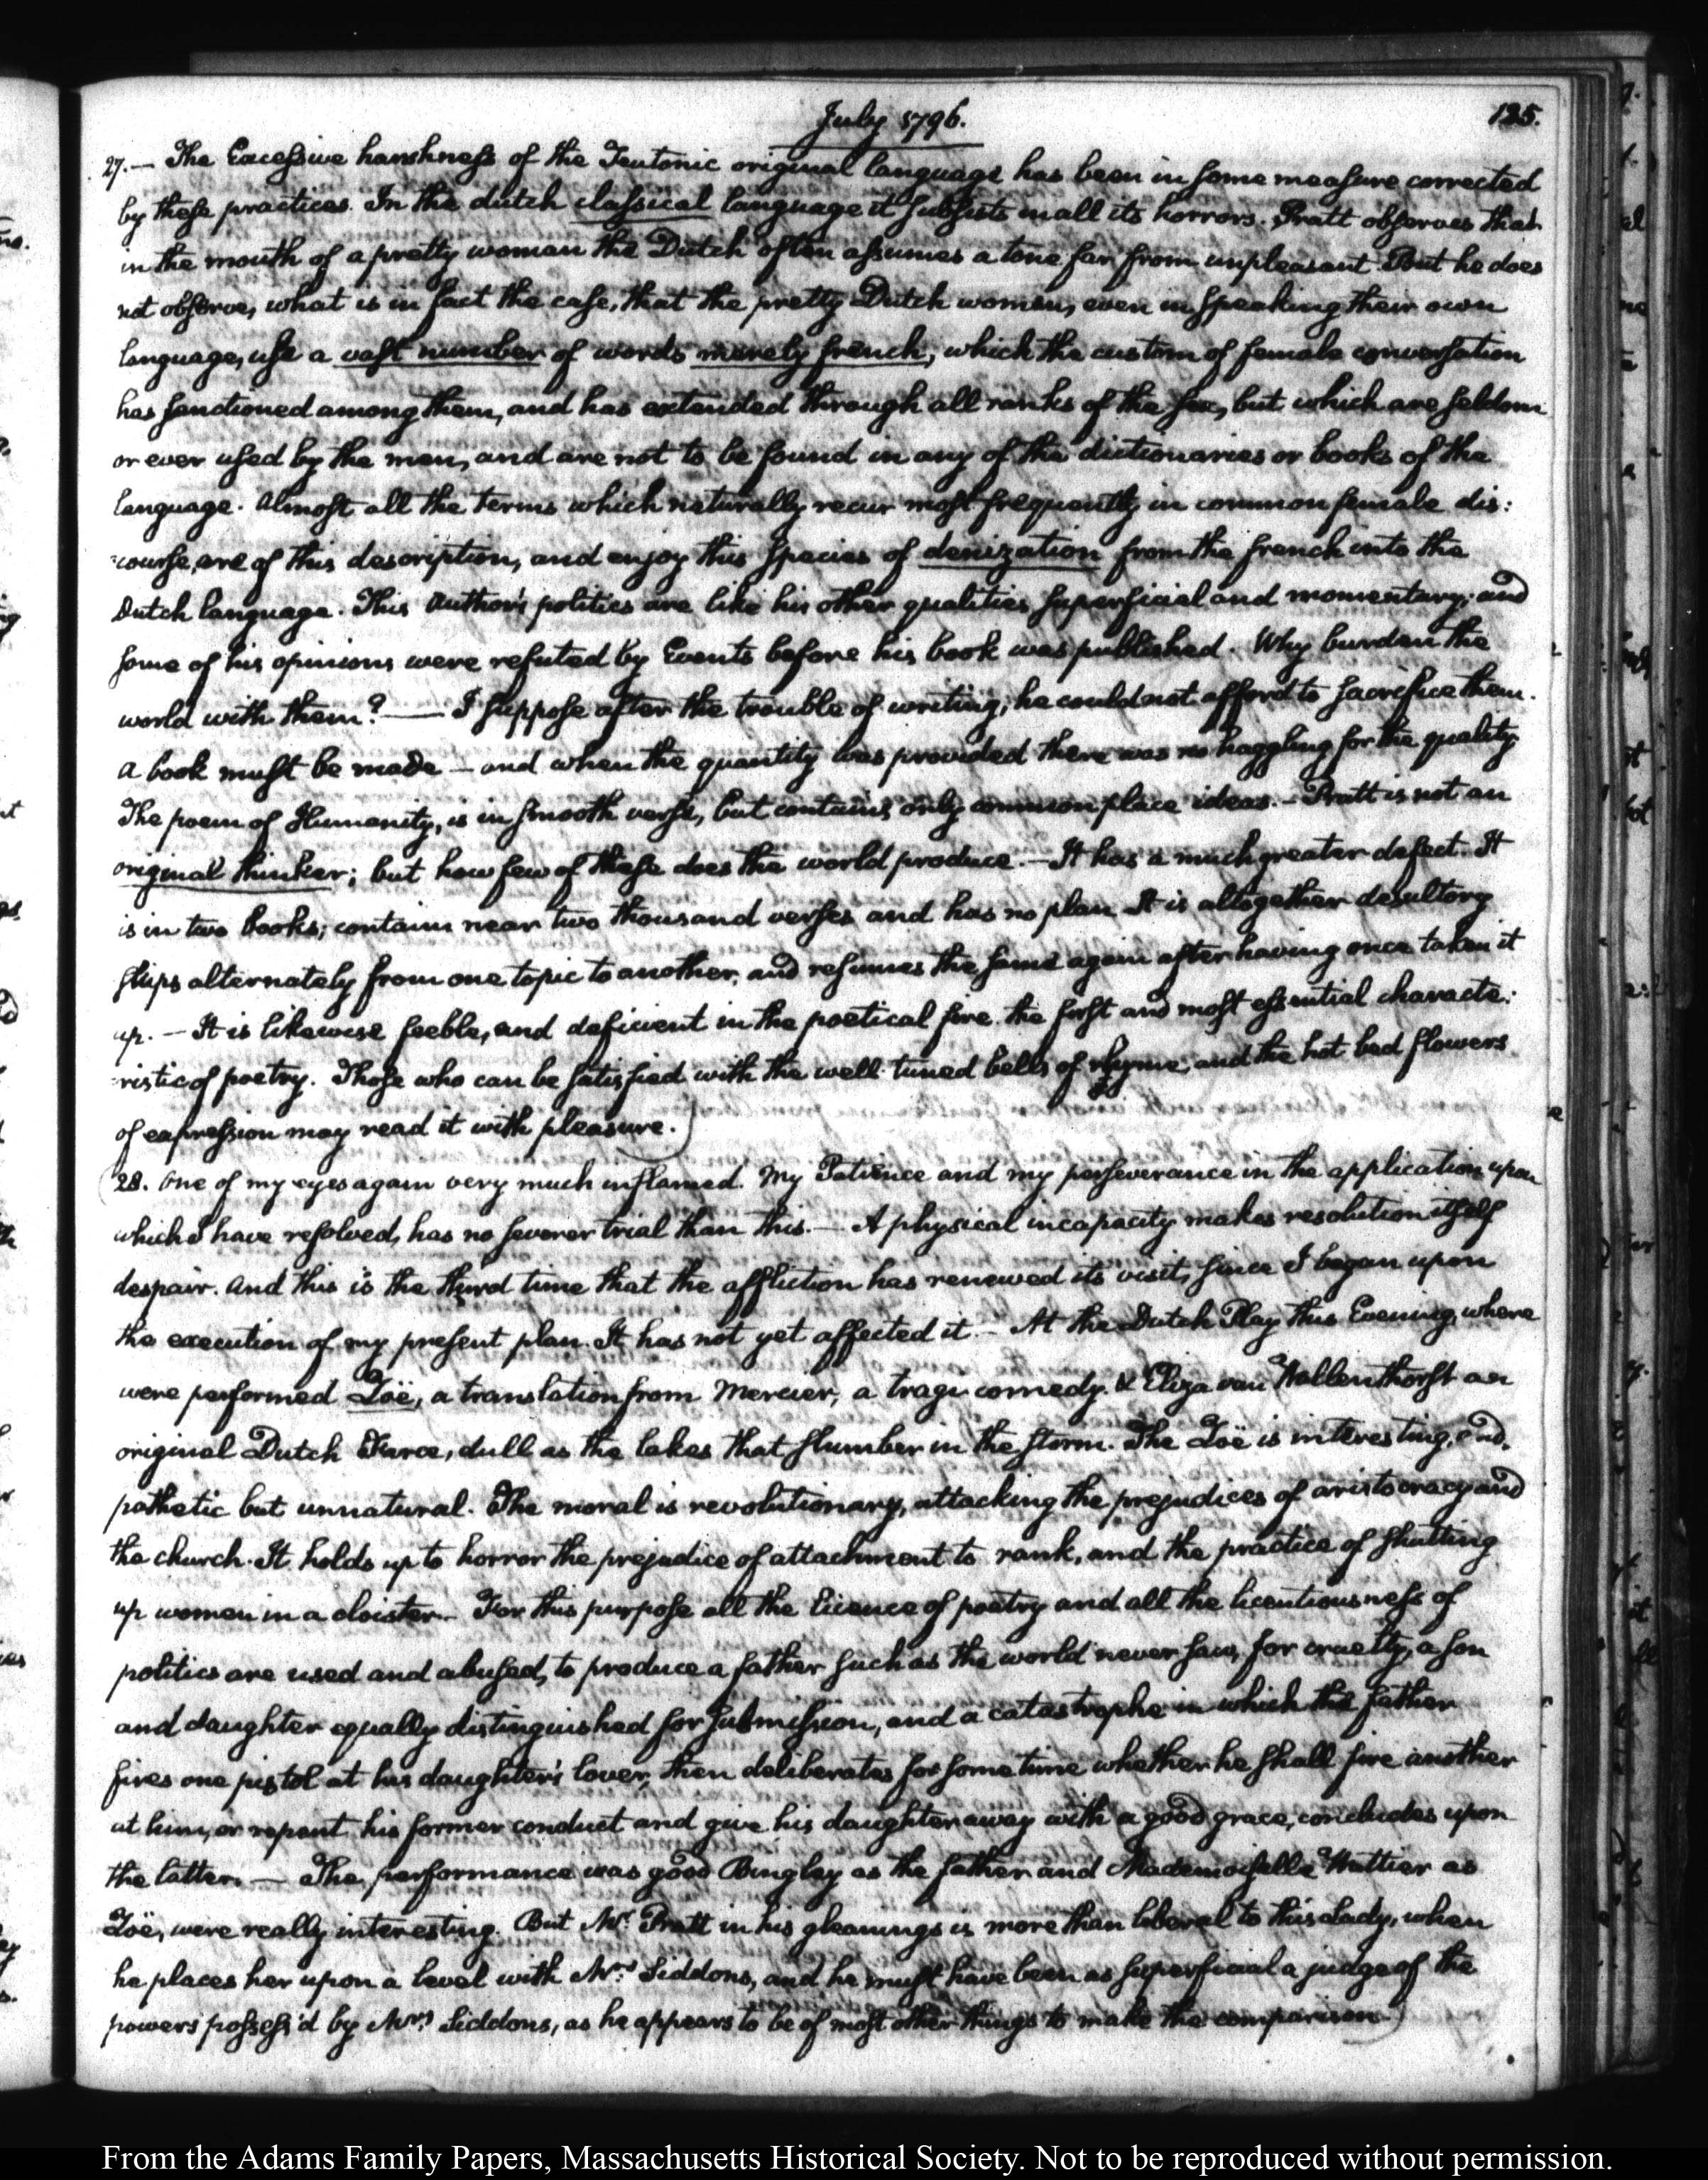 July 1796.
125.
27. — The Excessive harshness of the Teutonic original language has been in some measure corrected
by these practices. In the dutch classical language it subsists in all its horrors. Pratt observes that
in the mouth of a pretty woman the Dutch often assumes a tone far from unpleasant. But he does
not observe, what is in fact the case, that the pretty Dutch women, even in speaking their own
language, use a vast number of words merely french, which the custom of female conversation
has sanctioned among them, and has extended through all ranks of the sex, but which are seldom
or ever used by the men, and are not to be found in any of the dictionaries or books of the
language. Almost all the terms which naturally recur most frequently in common female dis:
:course, are of this description, and enjoy this species of denization from the french into the
Dutch language. This Author's politics are like his other qualities, superficial and momentary; and
some of his opinions were refuted by Events before his book was published. Why burden the
world with them? — I suppose after the trouble of writing, he could not afford to sacrifice them.
A book must be made — and when the quantity was provided there was no haggling for the quality
The poem of Humanity, is in smooth verse, but contains only common place ideas. — Pratt is not an
original thinker; but how few of these does the world produce. — It has a much greater defect. It
is in two books; contains near two thousand verses and has no plan. It is altogether desultory
skips alternately from one topic to another, and resumes the same again after having once taken it
up. — It is likewise feeble, and deficient in the poetical fire. the first and most essential characte:
:ristic of poetry. Those who can be satisfied with the well tuned bells of rhyme and the hot bed flowers
of expression may read it with pleasure.)
(28. One of my eyes again very much inflamed. My Patience and my perseverance in the application upon
which I have resolved, has no severer trial than this. — A physical incapacity makes resolution itself
despair. And this is the third time that the affliction has renewed its visit, since I began upon
the execution of my present plan. It has not yet affected it. — At the Dutch Play this Evening, where
were performed Zöe, a translation from Mercier, a tragi comedy. & Eliza van Wallenthorst an
original Dutch Farce, dull as the lakes that slumber in the storm. The Zöe is interesting, and
pathetic but unnatural. The moral is revolutionary, attacking the prejudices of aristocracy and
the church. It holds up to horror the prejudice of attachment to rank, and the practice of shutting
up women in a cloister. — For this purpose all the licence of poetry and all the licentiousness of
politics are used and abused, to produce a father such as the world never saw, for cruelty, a son
and daughter equally distinguished for submission, and a catastrophe in which the father
fires one pistol at his daughter's lover, then deliberates for some time whether he shall fire another
at him, or repent his former conduct and give his daughter away with a good grace, concludes upon
the latter. — The performance was good Bingley as the father and Mademoiselle Wattier as
Zöe, were really interesting. But Mr. Pratt in his gleanings is more than liberal to this Lady, when
he places her upon a level with Mrs. Siddons, and he must have been as superficial a judge of the
powers possess'd by Mrs. Siddons, as he appears to be of most other things to make the comparison.)
From the Adams Family Papers, Massachusetts Historical Society. Not to be reproduced without permission.